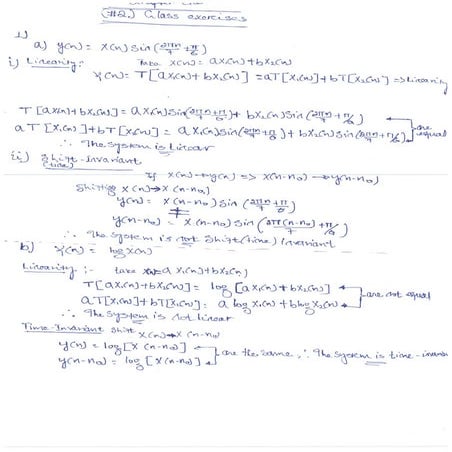 (#2) Class exercises
1)
a) y(n) = x(n) sin(2πn/7 + π/6)
i) Linearity: Take x(n) = ax₁(n) + bx₂(n)
Y(n) = T[ax₁(n) + bx₂(n)] = aT[x₁(n)] + bT[x₂(n)] => Linearity
T[ax₁(n) + bx₂(n)] = ax₁(n) sin(2πn/7 + π/6) + bx₂(n) sin(2πn/7 + π/6)
aT[x₁(n)] + bT[x₂(n)] = ax₁(n) sin(2πn/7 + π/6) + bx₂(n) sin(2πn/7 + π/6) are equal
∴ The system is Linear
ii) Shift-Invariant
(time)
If x(n) → y(n) => x(n-n₀) → y(n-n₀)
Shifting x(n) → x(n-n₀)
y(n) = x(n-n₀) sin(2πn/7 + π/6)
≠
y(n-n₀) = x(n-n₀) sin(2π(n-n₀)/7 + π/6)
∴ The system is not shift(time) Invariant
b) Y(n) = log x(n)
Linearity :- take ax₁(n) + bx₂(n)
T[ax₁(n) + bx₂(n)] = log[ax₁(n) + bx₂(n)]
aT[x₁(n)] + bT[x₂(n)] = a log x₁(n) + b log x₂(n) are not equal
∴ The system is not linear
Time-Invariant shift x(n) → x(n-n₀)
y(n) = log[x(n-n₀)]
y(n-n₀) = log[x(n-n₀)] are the same, ∴ The system is time-invari